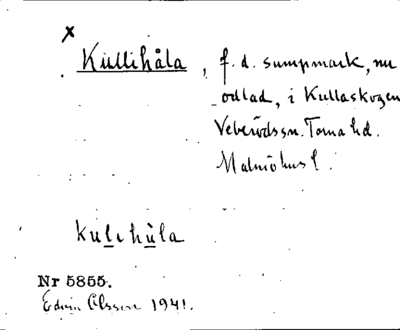 x
Kullihåla, f. d. sumpmark, nu
odlad, i Kullaskogen
Veberödssn. Torna hd.
Malmöhus l.
kulehula
Nr 5855.
Edvin Olsson 1941.